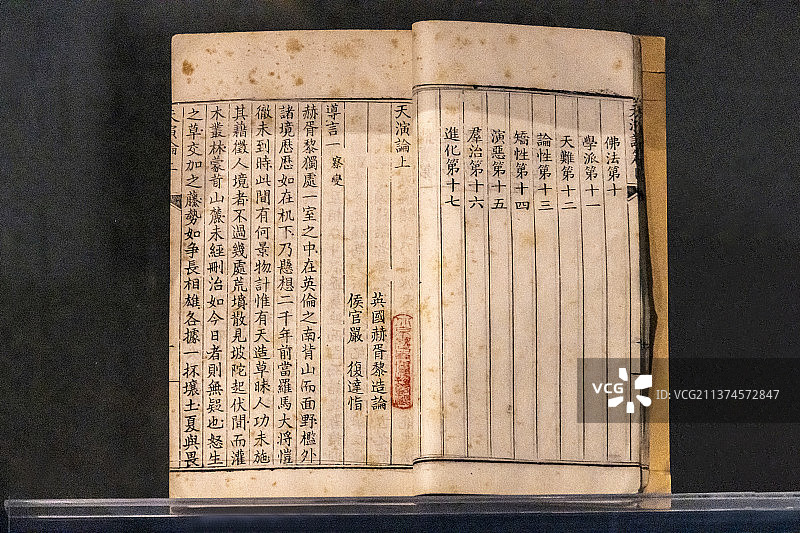 佛法第十
學派第十一
天難第十二
論性第十三
矯性第十四
演惡第十五
羣治第十六
進化第十七
天演論上
英國赫胥黎造論
侯官嚴 復達恉
導言一 察變
赫胥黎獨處一室之中在英倫之南背山而面野檻外
諸境歷歷如在机下乃懸想二千年前當羅馬大將愷
徹未到時此間有何景物計惟有天造草昧人功未施
其藉徵人境者不過幾處荒墳散見坡陀起伏間而灌
木叢林蒙茸山麓未經刪治如今日者則無疑也怒生
之草交加之藤勢如爭長相雄各據一抔壤土夏與畏
天演論
VCG
VCG211374572847
VCG.COM